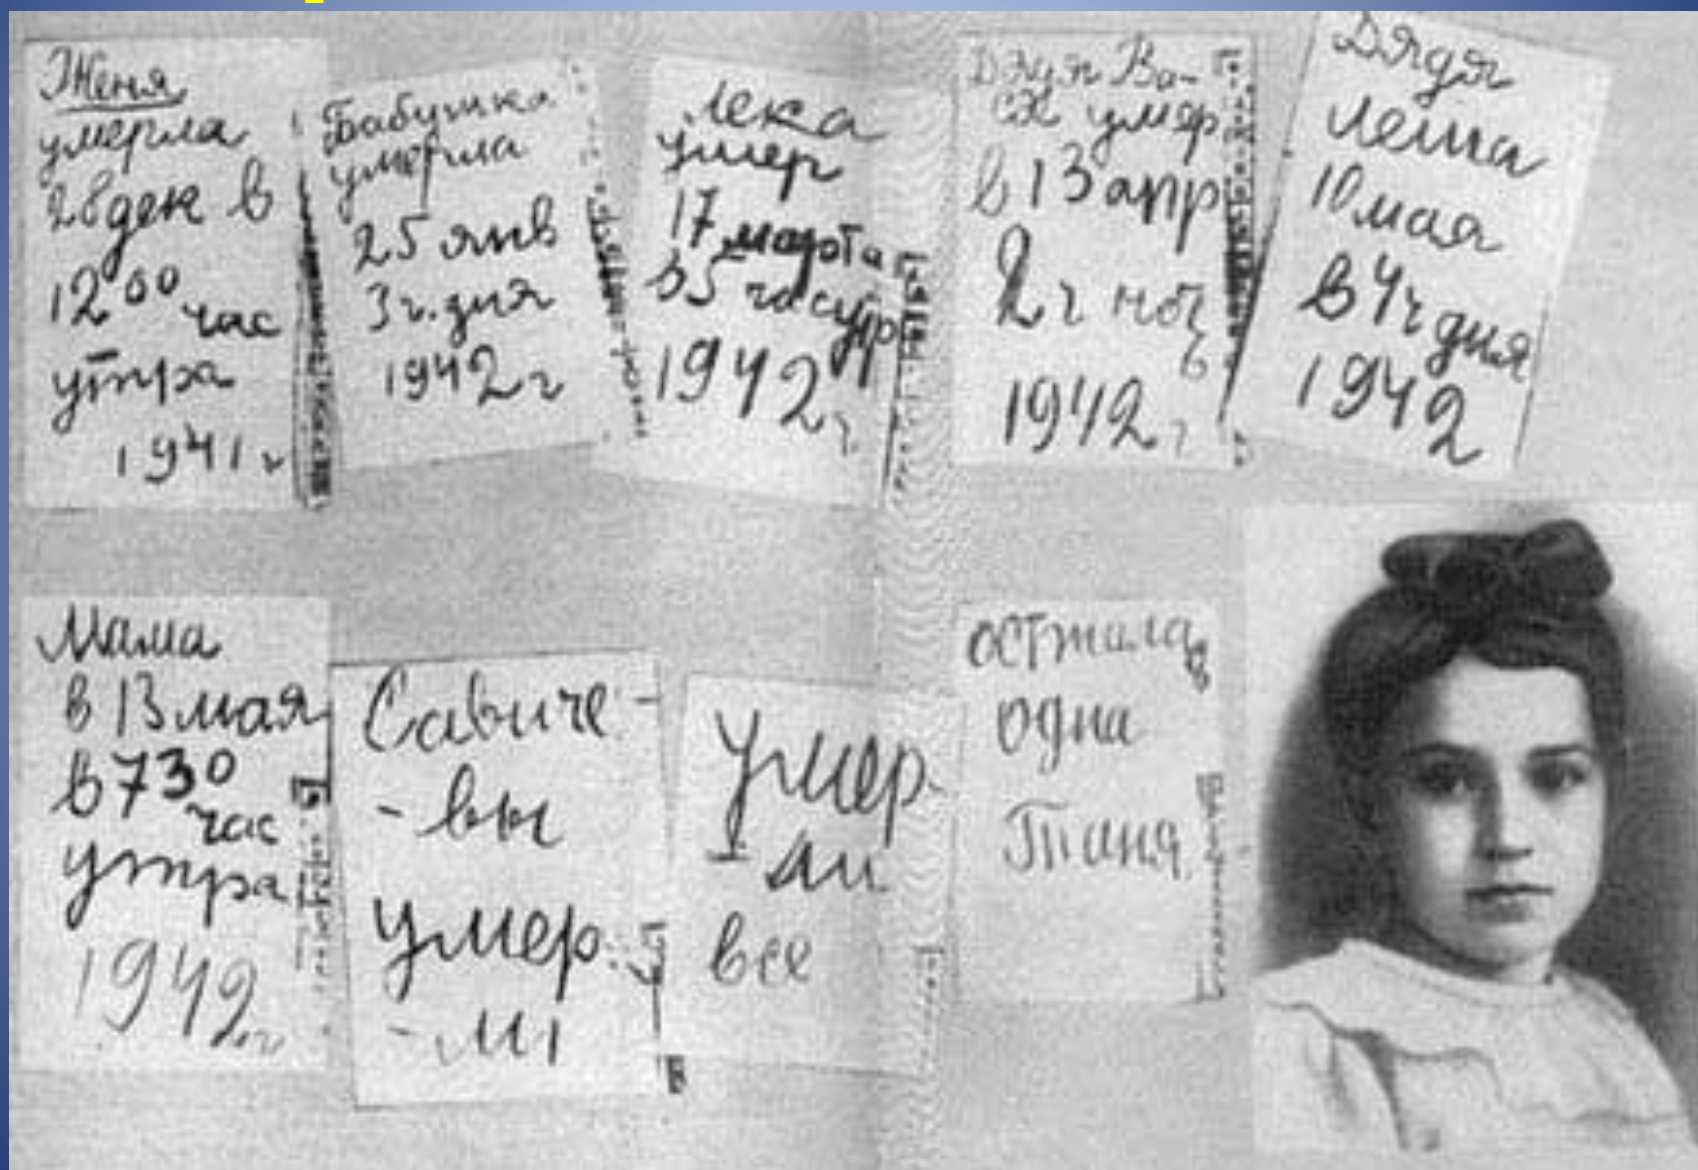 Женя
умерла
28 дек в
12 00 час
утра
1941 г
Бабушка
умерла
25 янв
3 ч. дня
1942 г
Лека
умер
17 марта
в 5 час утр
1942 г.
Дядя Ва-
ся умер
в 13 апр
2 ч ноч
ь
1942 г
Дядя
Леша
10 мая
в 4 ч дня
1942
Мама
в 13 мая
в 7 30
час
утра
1942 г
Савиче-
-вы
умер
-ли
Умер
-ли
все
осталась
одна
Таня